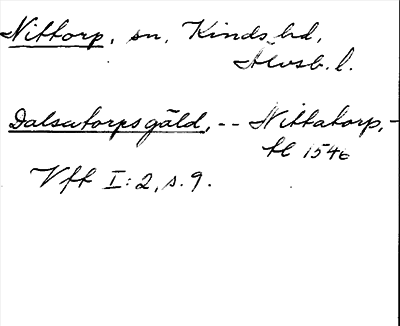 Nittorp, sn, Kinds hd,
Älvsb. l.
Dalsatorpsgäld, -- Nittatorp, -
tl 1546
Vft I:2, s. 9.